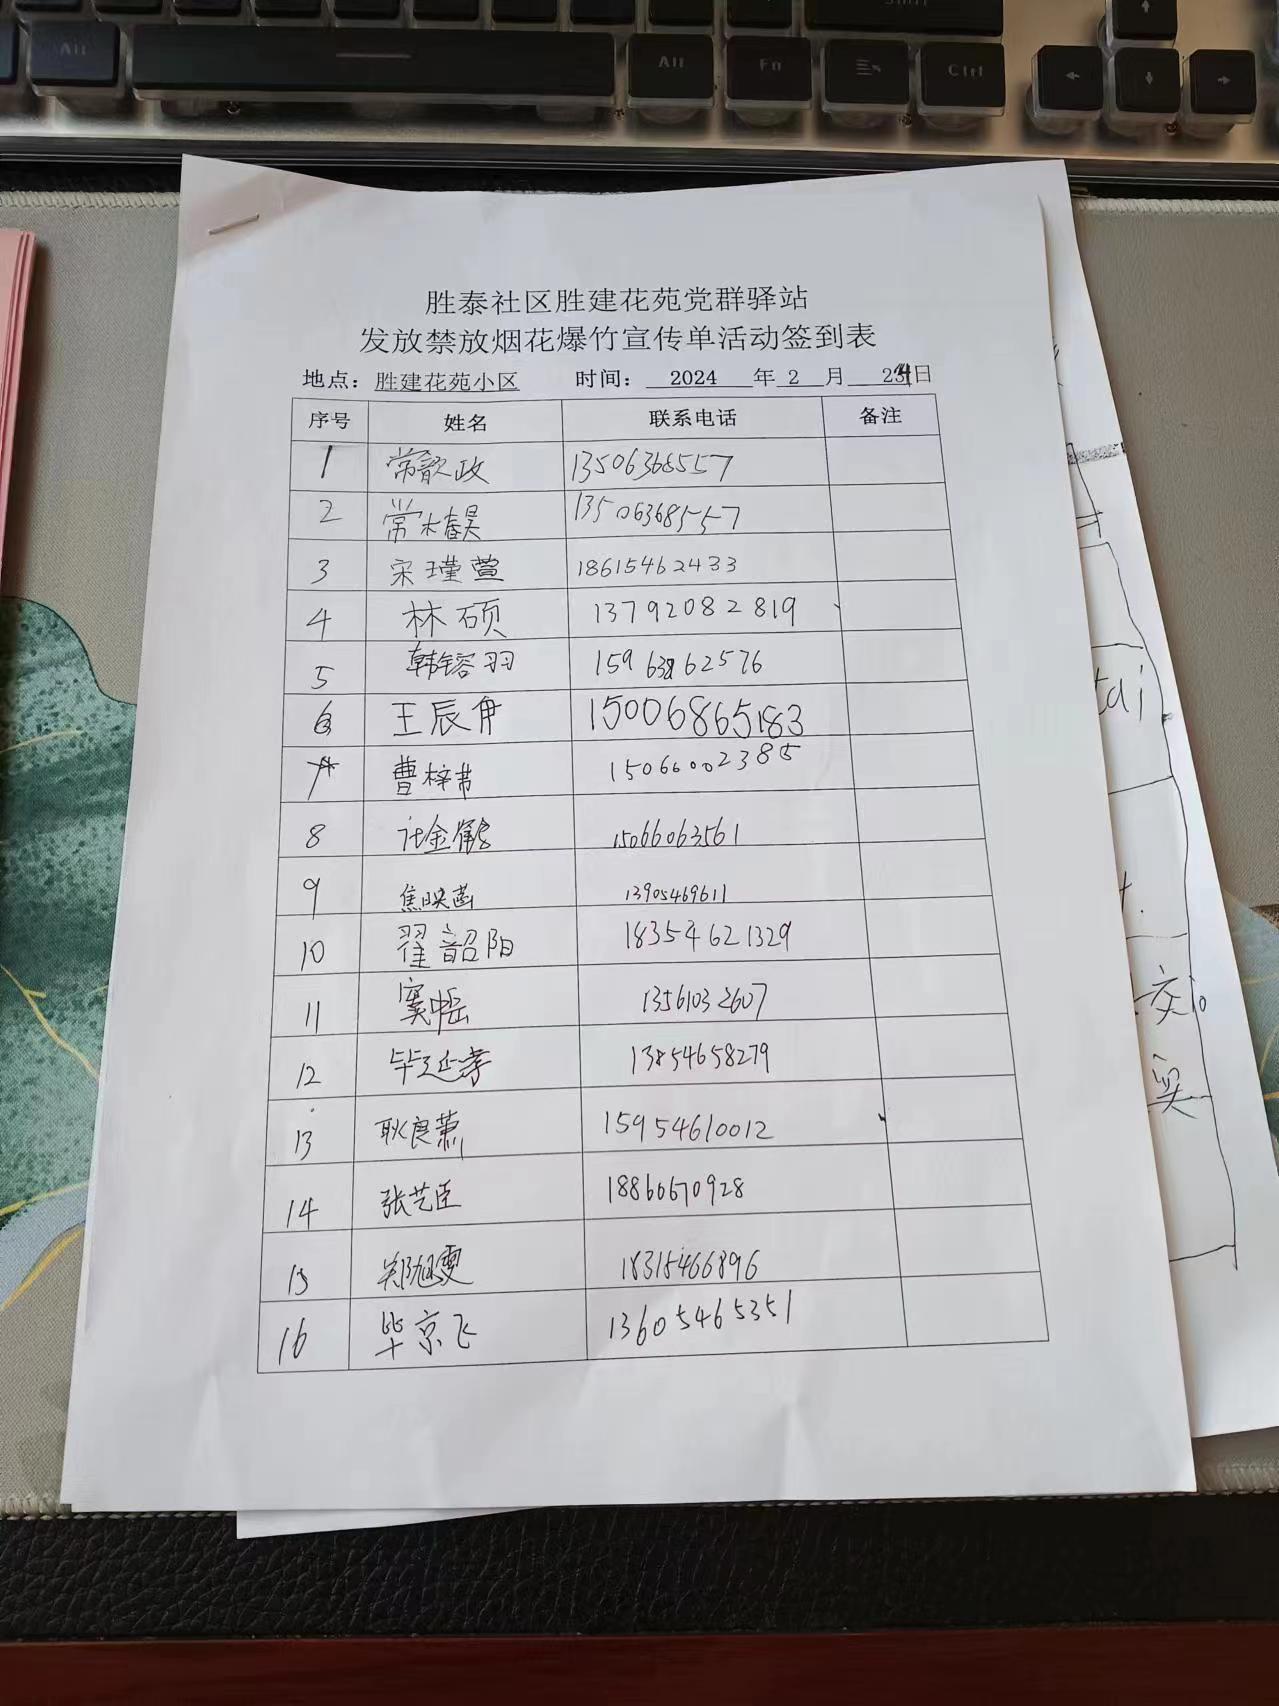 Alt
Alt
Fn
Ctrl
胜泰社区胜建花苑党群驿站
发放禁放烟花爆竹宣传单活动签到表
地点：胜建花苑小区 时间： 2024 年 2 月 24日
序号 姓名 联系电话 备注
1 常歆政 13506368557
2 常木春昊 13506368557
3 宋瑾萱 18615462433
4 林硕 13792082819
5 韩镕羽 15963862576
6 王辰伊 15006865183
7 曹梓芾 15066002385
8 15066063561
9 焦映菡 13905469611
10 翟韶阳 18354621329
11 窦 13561032607
12 毕延孝 13854658279
13 耿良萧 15954610012
14 张艺臣 18860670928
15 郑旭雯 18315466896
16 毕京飞 13605465351
tai
交